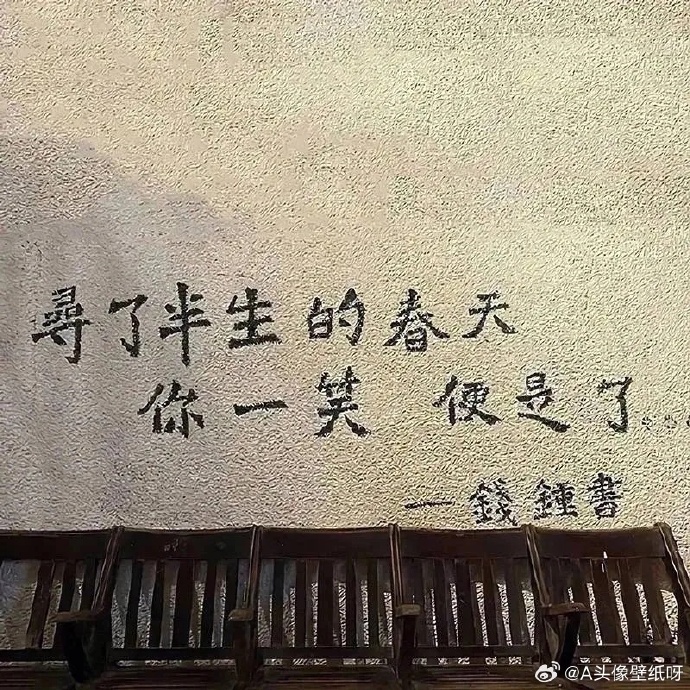 尋了半生的春天
你一笑 便是了...
—錢鍾書
@A头像壁纸呀